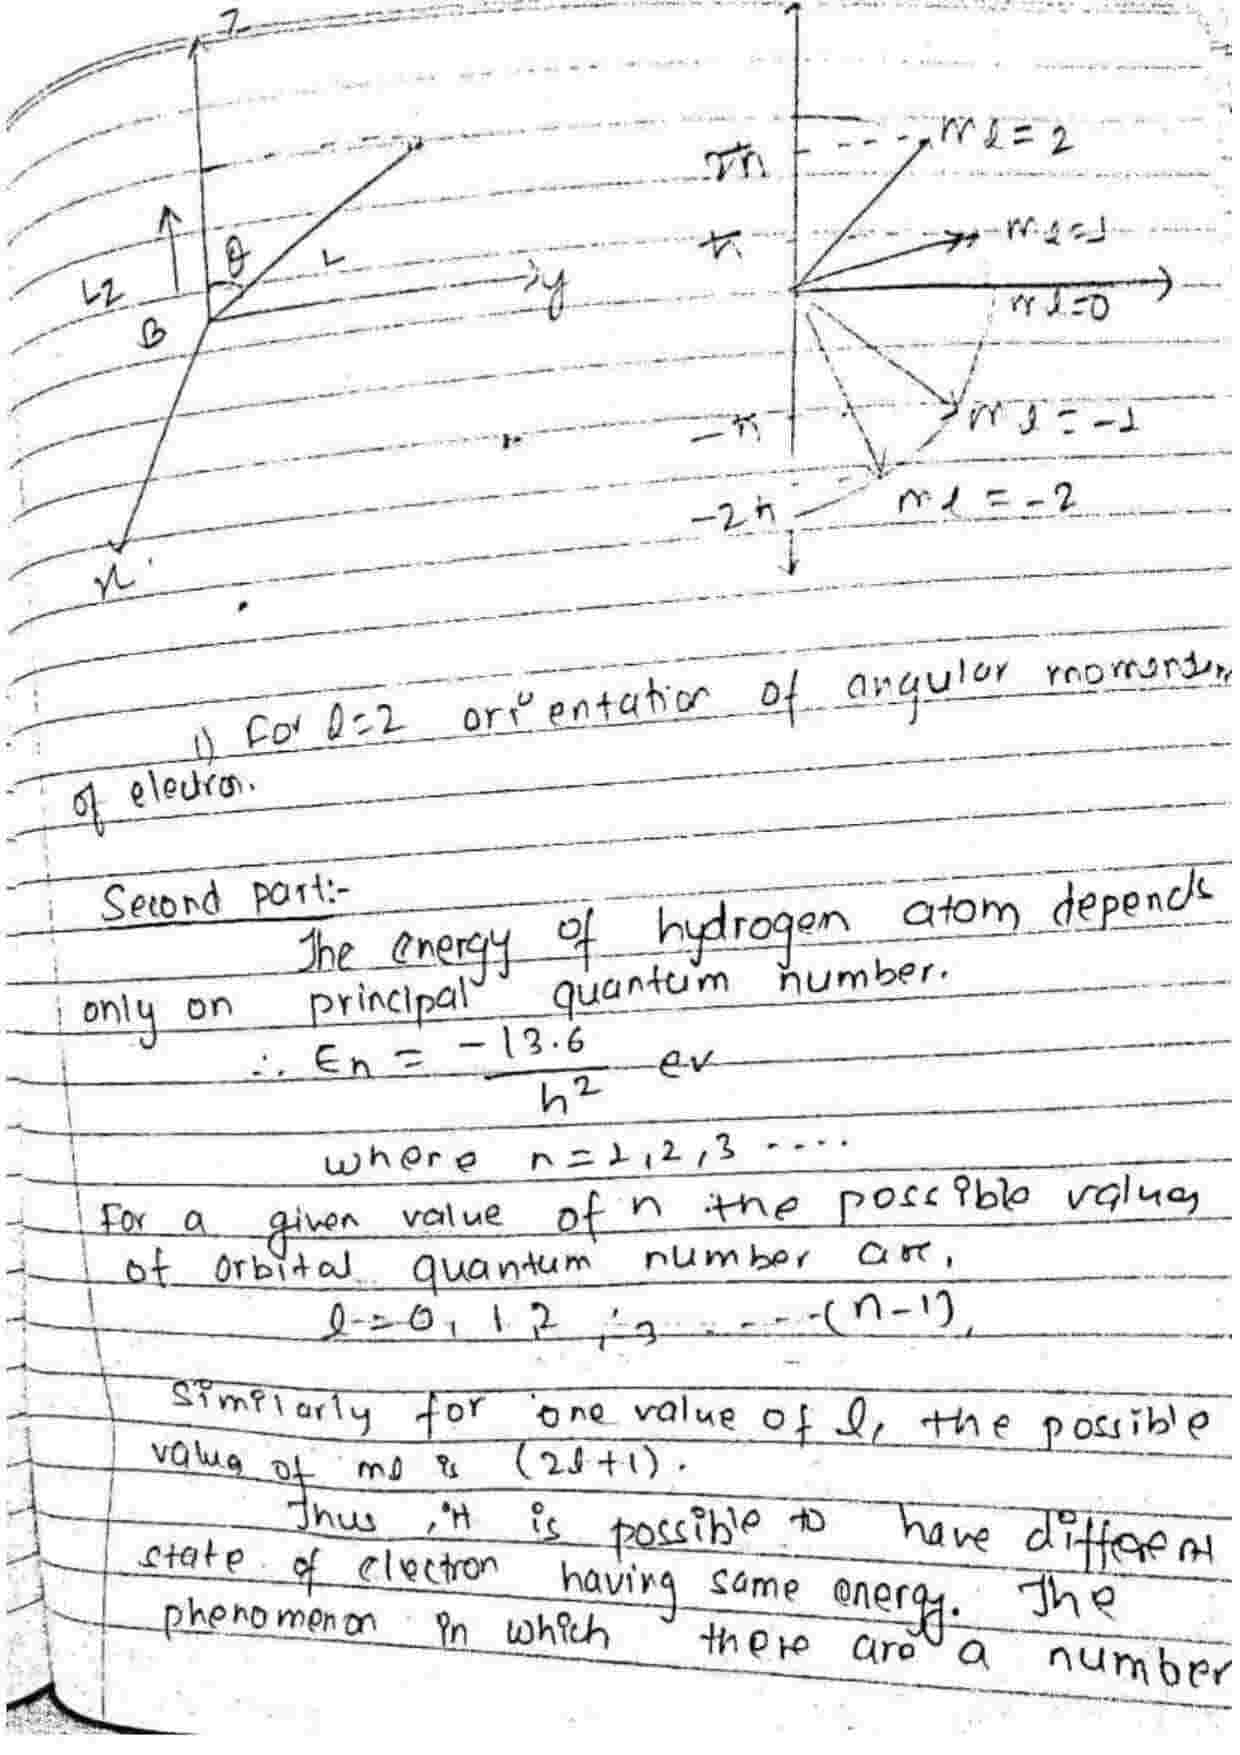 Z
L
θ
Lz
y
B
x
2ħ
ml = 2
ħ
ml=1
ml=0
-ħ
ml = -1
-2ħ
ml = -2
1) For l=2 orientation of angular momentum
of electron.
Second part:-
The energy of hydrogen atom depends
only on principal quantum number.
∴ En = -13.6 / n² ev
where n = 1, 2, 3 ....
For a given value of n the possible values
of orbital quantum number are,
l = 0, 1, 2, 3 ...... (n-1),
Similarly for one value of l, the possible
value of ml is (2l+1).
Thus, it is possible to have different
state of electron having same energy. The
phenomenon in which there are a number